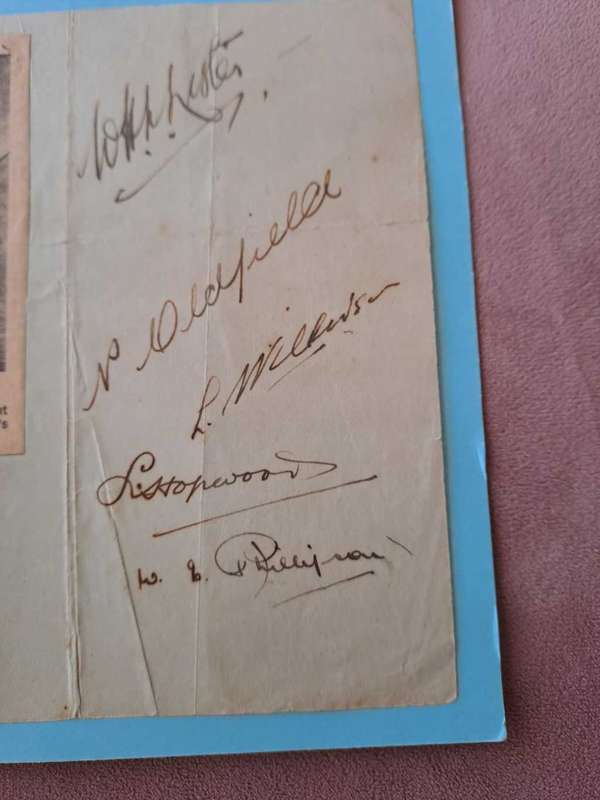 W H L Lister
N Oldfield
L. Wilkinson
L. Hopwood
W. E. Phillipson